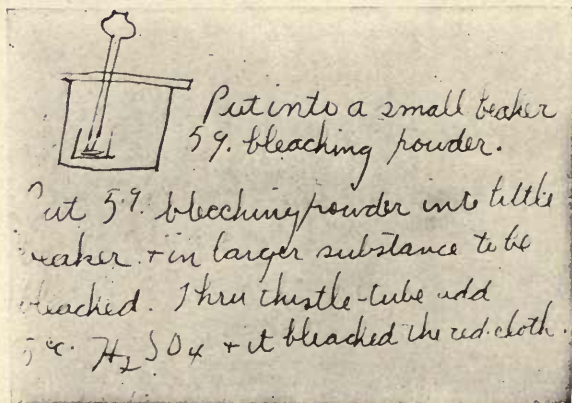 Put into a small beaker
5 g. bleaching powder.
Put 5 g. bleeching powder into little
beaker + in larger substance to be
bleached. Thru thistle-tube add
5 cc. H2SO4 + it bleached the red cloth.